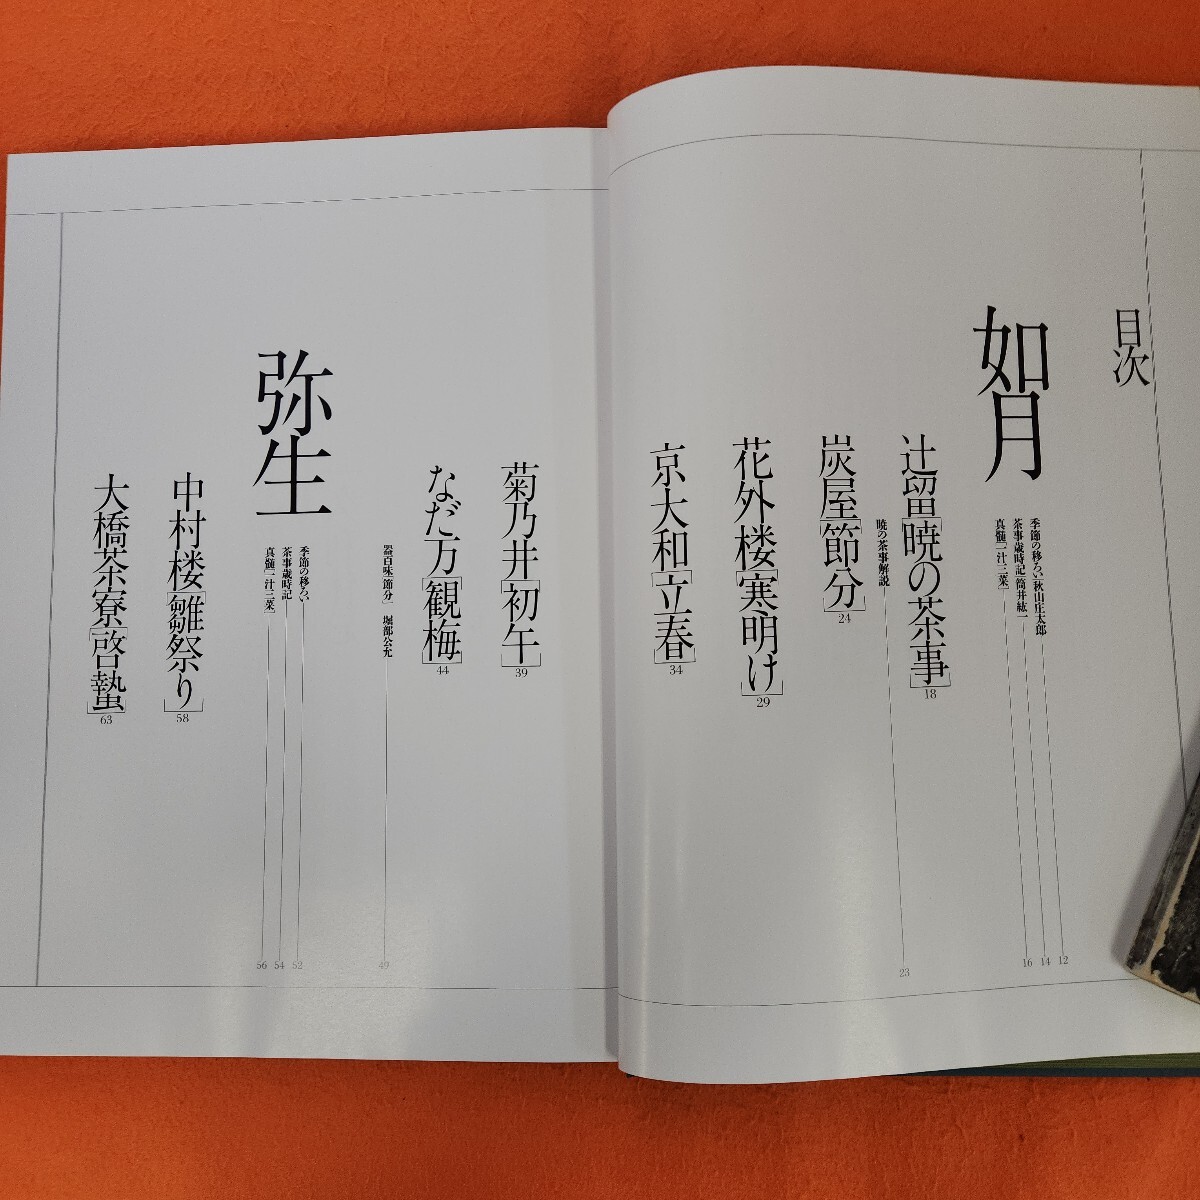 目次
如月
季節の移ろい 秋山庄太郎 12
茶事歳時記 筒井紘一 14
真髄「一汁三菜」 16
辻留[暁の茶事] 18
暁の茶事解説 23
炭屋[節分] 24
花外楼[寒明け] 29
京大和[立春] 34
菊乃井[初午] 39
なだ万[観梅] 44
器百味「節分」 堀部公允 49
弥生
季節の移ろい 52
茶事歳時記 54
真髄「一汁三菜」 56
中村楼[雛祭り] 58
大橋茶寮[啓蟄] 63